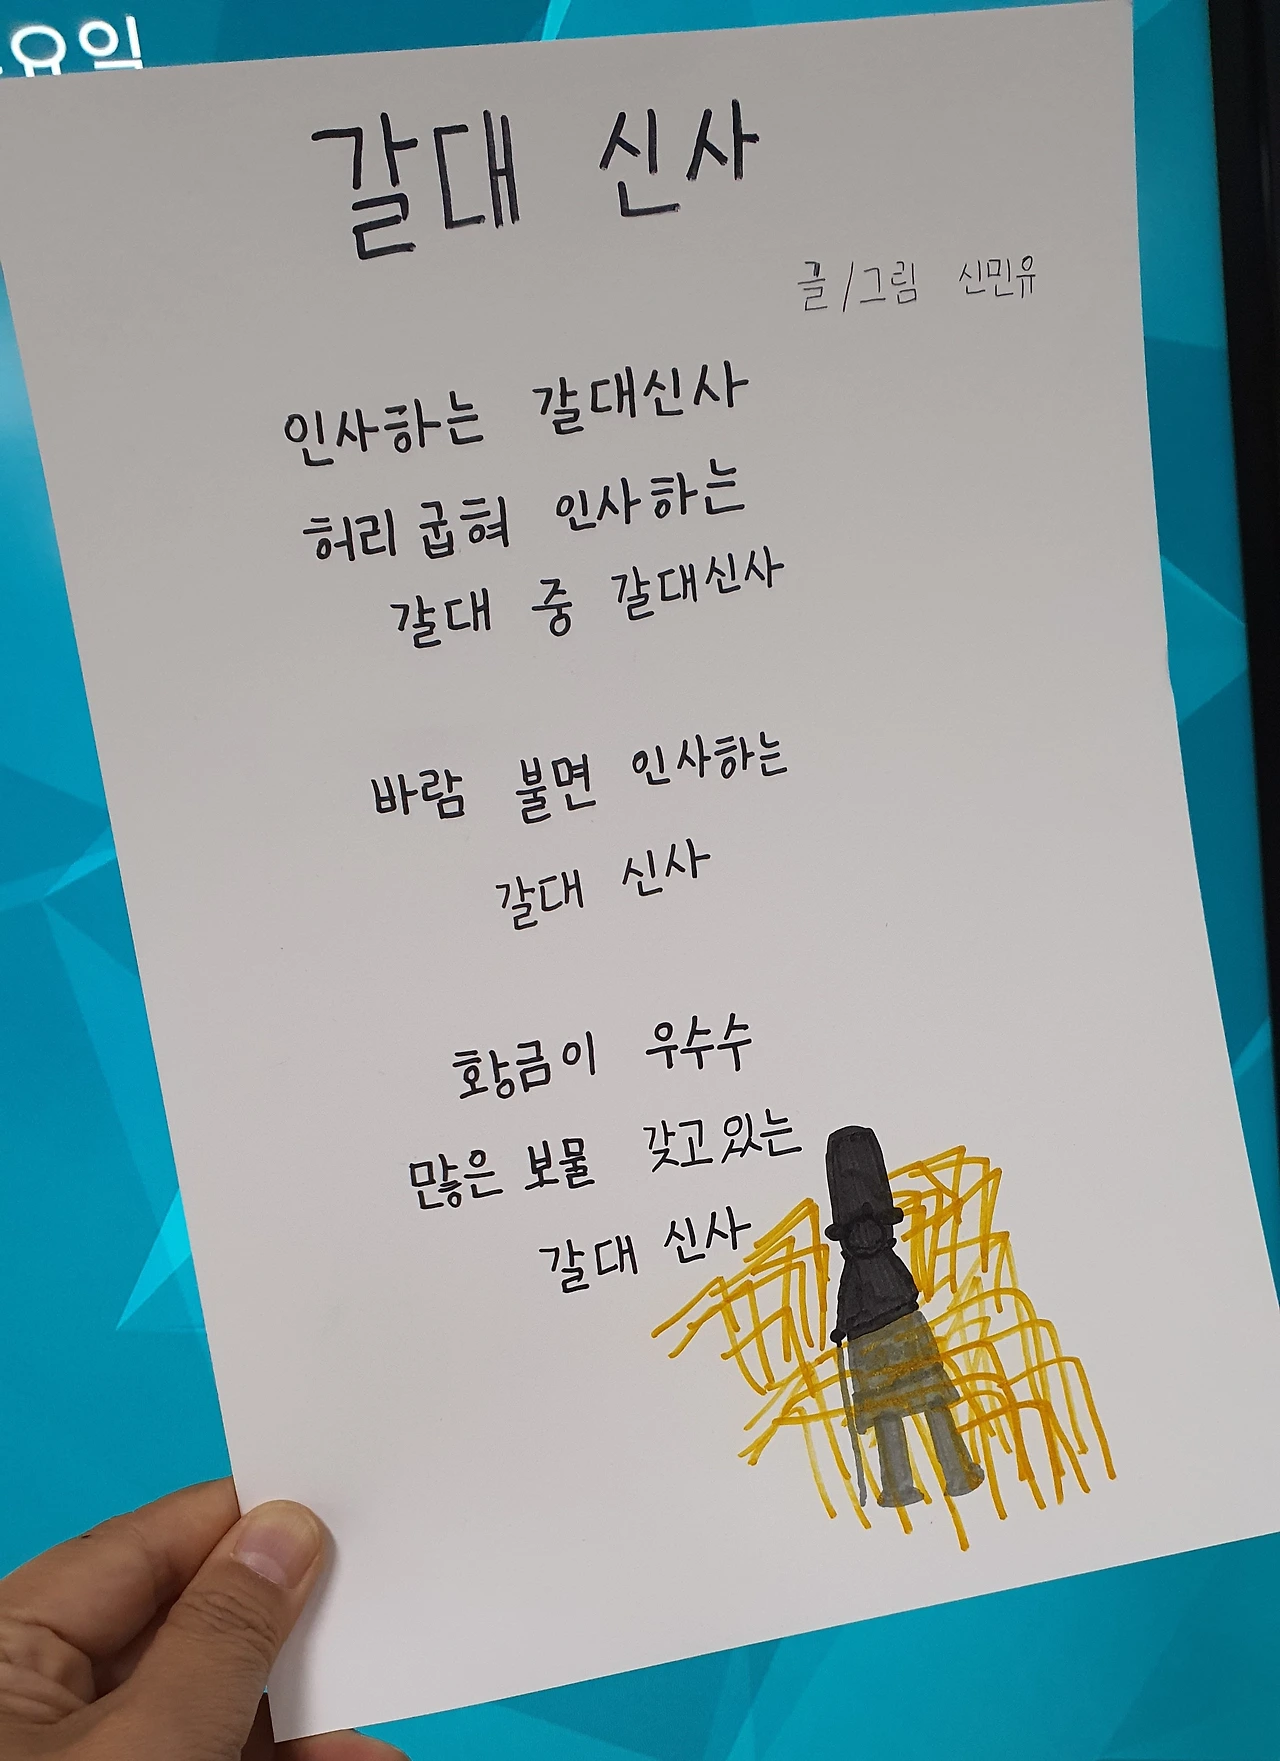 요일
갈대 신사
글/그림 신민유
인사하는 갈대신사
허리 굽혀 인사하는
갈대 중 갈대신사
바람 불면 인사하는
갈대 신사
황금이 우수수
많은 보물 갖고있는
갈대 신사